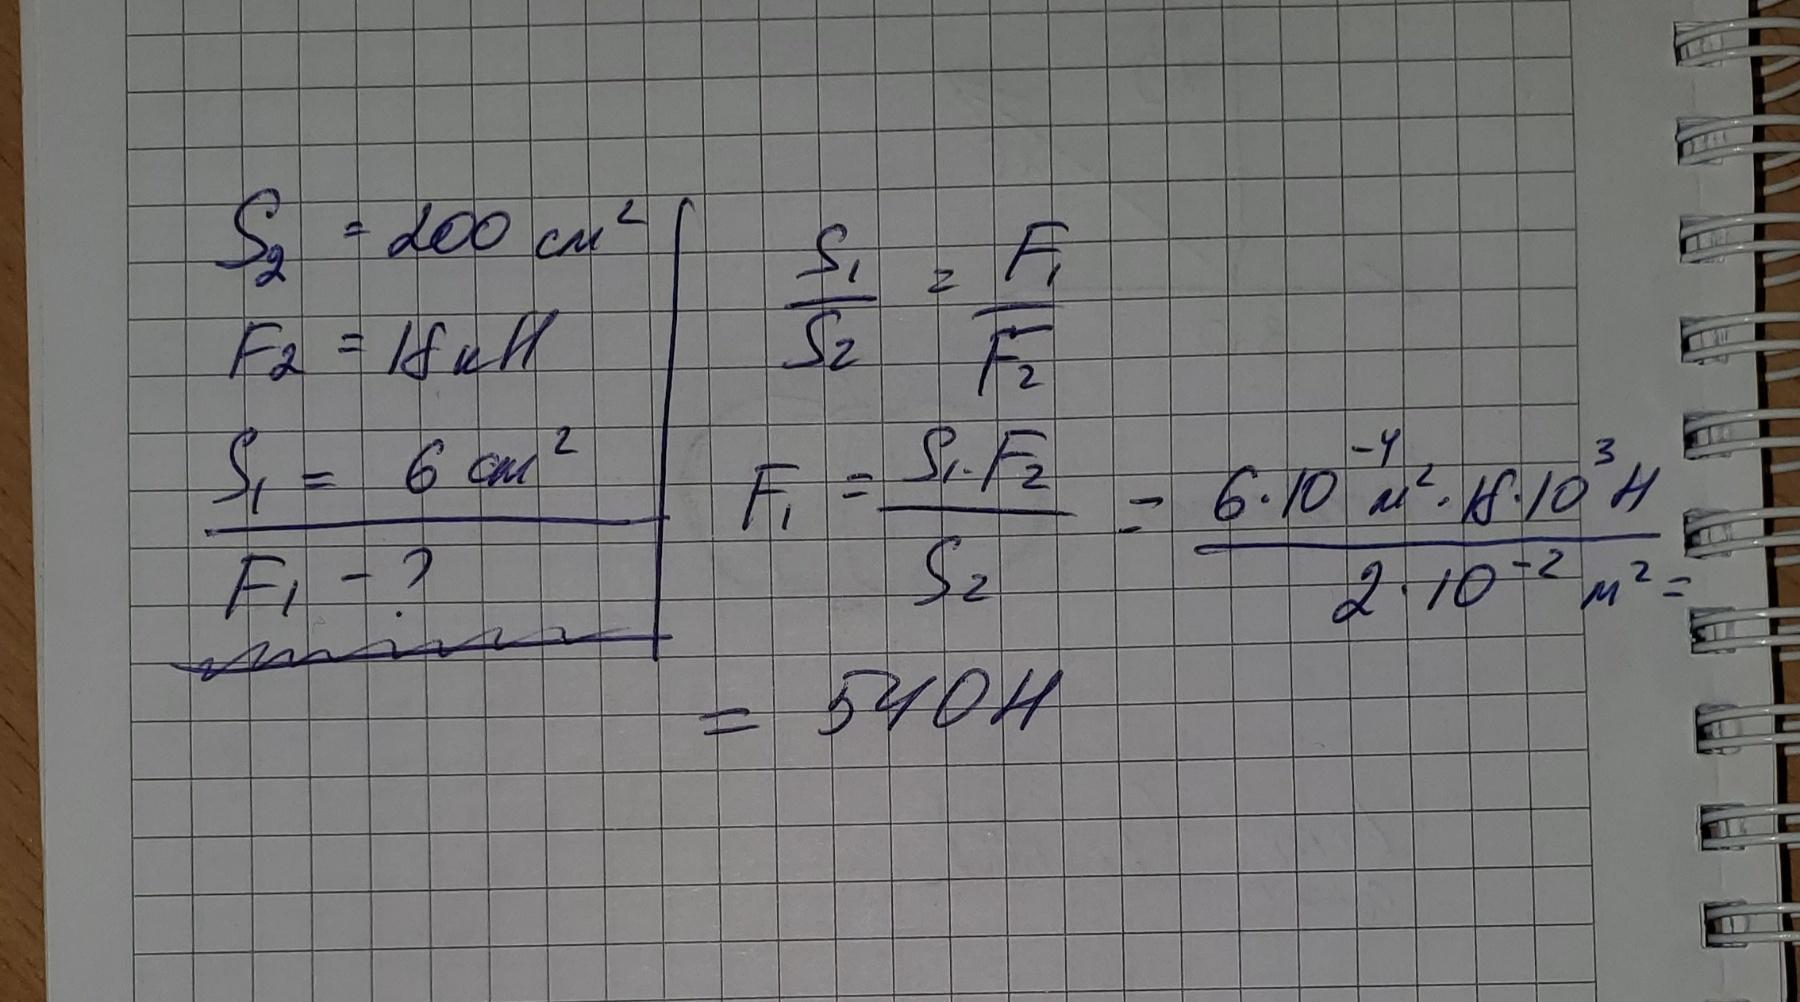 S₂ = 200 см²
F₂ = 18 кН
S₁ = 6 см²
F₁ - ?
S₁/S₂ = F₁/F₂
F₁ = S₁·F₂/S₂ = 6·10⁻⁴ м²·18·10³ Н/2·10⁻² м² =
= 540 Н